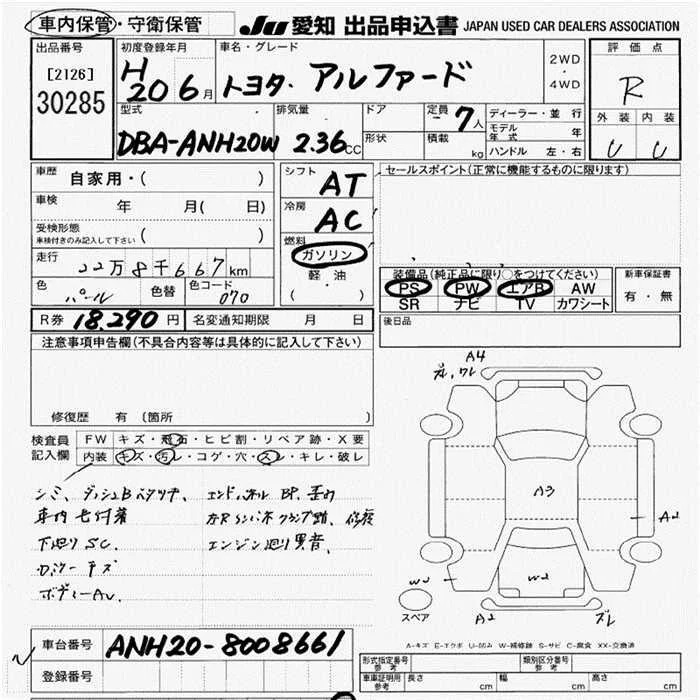 車内保管・守衛保管
JU 愛知 出品申込書 JAPAN USED CAR DEALERS ASSOCIATION
出品番号
[2126]
30285
初度登録年月
H20 6月
車名・グレード
トヨタ アルファード
2WD
・
4WD
評価点
R
外装 内装
U U
型式
DBA-ANH20W
排気量
2.36cc
ドア
形状
定員 7人
積載 kg
ディーラー・並行
モデル年式 年
ハンドル 左・右
車歴 自家用・( )
車検 年 月( 日)
受検形態
車検付きのみ記入して下さい ( )
走行 22万8千667km
色 パール 色替 色コード 070
シフト AT
冷房 AC
燃料
ガソリン
軽油
( ・ )
セールスポイント(正常に機能するものに限ります)
装備品(純正品に限り○をつけてください)
PS PW エアB AW
SR ナビ TV カワシート
新車保証書
有・無
R券 18,290円 名変通知期限 月 日
後日品
注意事項申告欄(不具合内容等は具体的に記入して下さい)
修復歴 有 (箇所
検査員
記入欄
FW キズ・飛石・ヒビ割・リペア跡・X要
内装 キズ・汚レ・コゲ・穴・スレ・キレ・破レ
シミ、ダッシュBベタツキ、
車内 付着
下廻りSC.
キズ
ボディーAU.
エンドパネル BP. 歪み
右Rインパネ クランプ跡、修復
エンジン廻り異音、
A4
ワレ
A3
A2
W2
W2
A2
ズレ
スペア
A-キズ E-エクボ U-凹み W-補修跡 S-サビ C-腐食 XX-交換済
車台番号 ANH20-8008661
登録番号
形式指定番号 参考
類別区分番号 参考
車庫証明用 参考 長さ cm 幅 cm 高さ cm